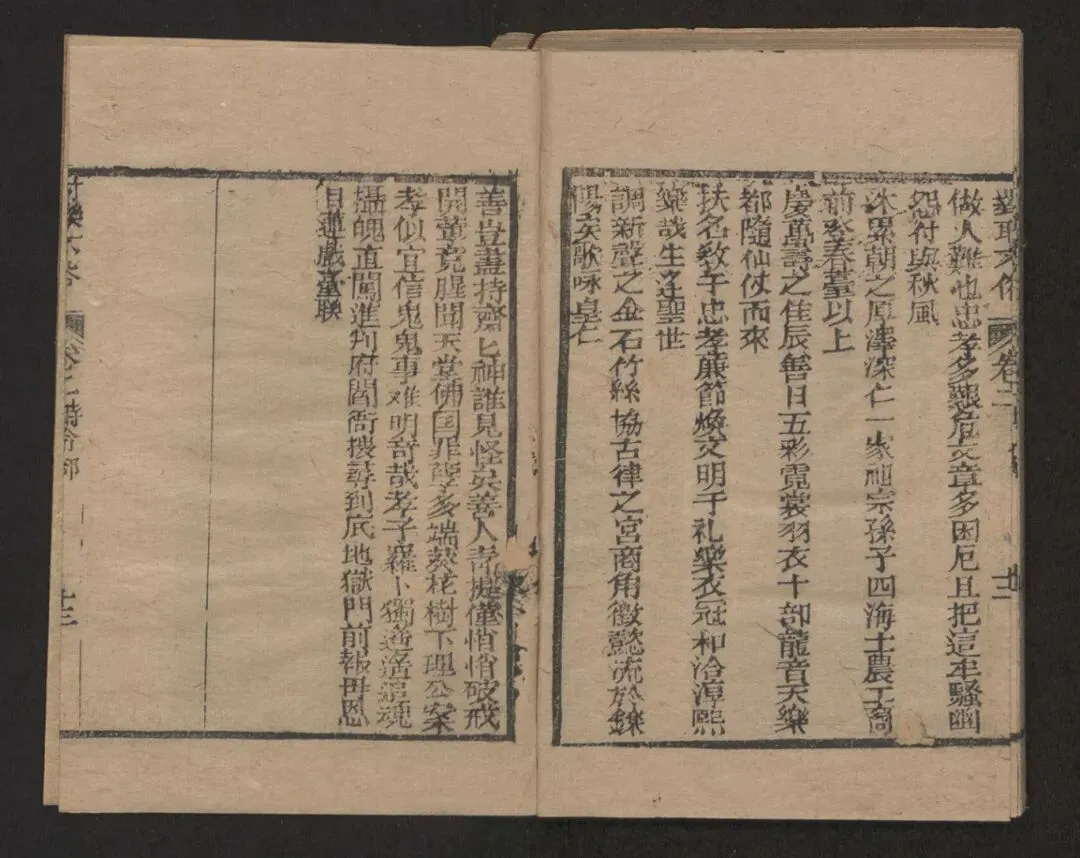 對聯不俗 卷二 廿二
做人難也忠孝多艱危文章多困厄且把這牢騷幽
怨付與秋風
沐累朝之厚澤深仁一家祖宗孫子四海士農工商
前登春臺以上
慶萬壽之佳辰善日五彩霓裳羽衣十部龍音天樂
都隨仙仗而來
扶名教于忠孝廉節煥文明于礼樂衣冠和洽漳熙
樂哉生逢聖世
調新聲之金石竹絲協古律之宮商角徵懿流於鑠
陽矣歌咏皇仁
善豈盡持齋匕神誰見怪英善人斋提僅悄悄破戒
開葷竟腥聞天堂佛国罪孽多端葵花樹下理公案
孝似宜信鬼鬼事难明奇哉孝子羅卜獨遊活追魂
攝魄直闖進判府閻衙搜尋到底地獄門前報母恩
目蓮戲臺聯
卷之 十二